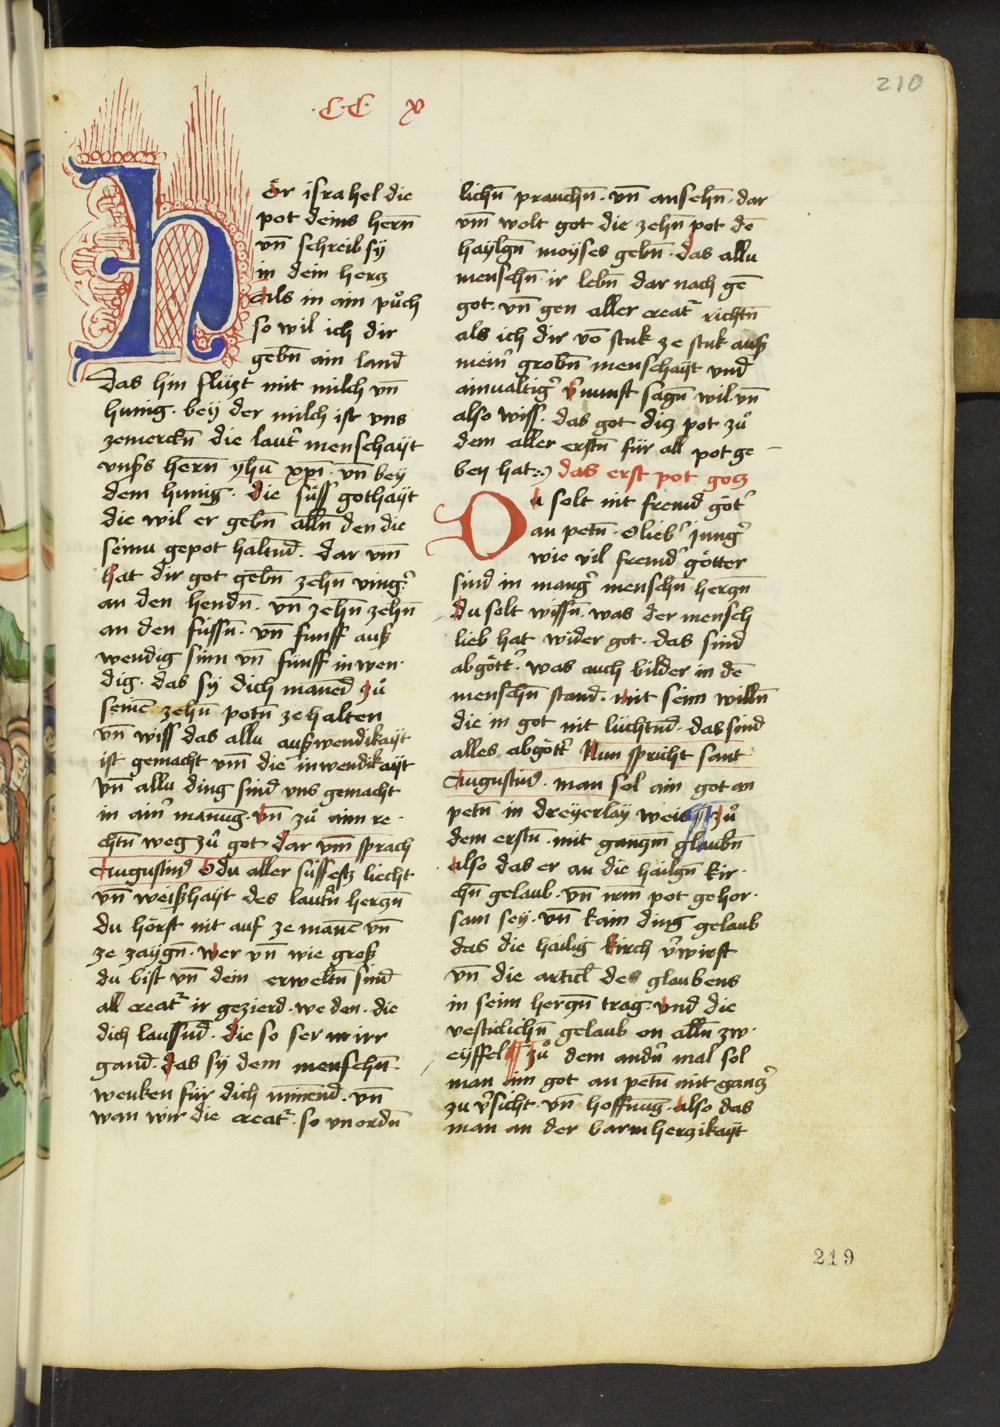 210
·C·C· x
Hör israhel die
pot deins herñ
vñ schreib sÿ
in dein hercz
Als in ain půch
so wil ich dir
gebñ ain land
das hin flüzt mit milch vñ
hunig · beÿ der milch ist vns
zemerckñ die laut' menschaÿt
vnsßs herñ yhū xp̄i · vñ beÿ
dem hunig · die süss gothaÿt
die wil er gebñ alln̄ den die
seinu gepot haltnd · Dar vm̄
hat dir got gebñ zehn̄ ving'
an den hendñ · vñ zehn̄ zehn̄
an den füssñ · vñ funff auß
wendig sinn vñ fünff in wen·
dig · das sÿ dich maned zů
seinē zehn̄ potñ ze halten
vñ wiss das allu außwendikaÿt
ist gemacht vm̄ die inwendikaÿt
vñ allu ding sind vns gemacht
in ain' manug · vñ zů ainn re·
chtñ weg zů got · dar vm̄ sprach
Augustin9 O du aller süssestz liecht
vñ weißhaÿt des lautñ herczñ
du hörst nit auf ze manē vñ
ze zaÿgñ · wer vñ wie groß
du bist vñ dein erweltñ sind
all creat' ir gezierd · we den · die
dich laussnd · die so ser in irr
gand · das sÿ dem menschn̄ ·
wenken für dich mīnend · vñ
wan wir die creat' · so vnordñ
lichñ prauchñ · vñ ansehñ · dar
vm̄ wolt got die zehn̄ pot dē
haÿlgñ moÿses gebñ · das allu
menschñ ir lebñ dar nach gē
got · vñ gen aller creat' richtñ
als ich dir vō stuk ze stuk auß
mein' grobñ menschaÿt vnd
ainualtig' v'nunft sagñ wil vñ
also wiss · das got dicz pot zů
dem aller erstñ für all pot ge
ben hat :· das erst pot gocz
Du solt nit fremd göt'
an petñ · O lieb' jung'
wie vil fremd' götter
sind in mang' menschñ herczñ
du solt wissñ · was der mensch
lieb hat wider got · das sind
abgött' · was auch bilder in dē
menschñ stand · mit seim willñ
die in got nit lüchtnd · das sind
alles abgött' Nun spricht sant
Augustin9 · man sol ain got an
petñ in dreÿerlaÿ weis zů
dem erstñ · mit ganczm glaubñ
also das er an die hailgñ kir·
chñ gelaub · vñ irm pot gehor·
sam seÿ · vñ kain ding gelaub
das die hailig kirch v'wirft
vñ die articl des glaubens
in seim herczñ trag · vnd die
vesticlichñ gelaub on alln̄ zw·
eÿffel zů dem andñ mal sol
man ain got an petñ mit gancz'
zu v'sicht · vñ hoffnug · also das
man an der barmherczikaÿt
219